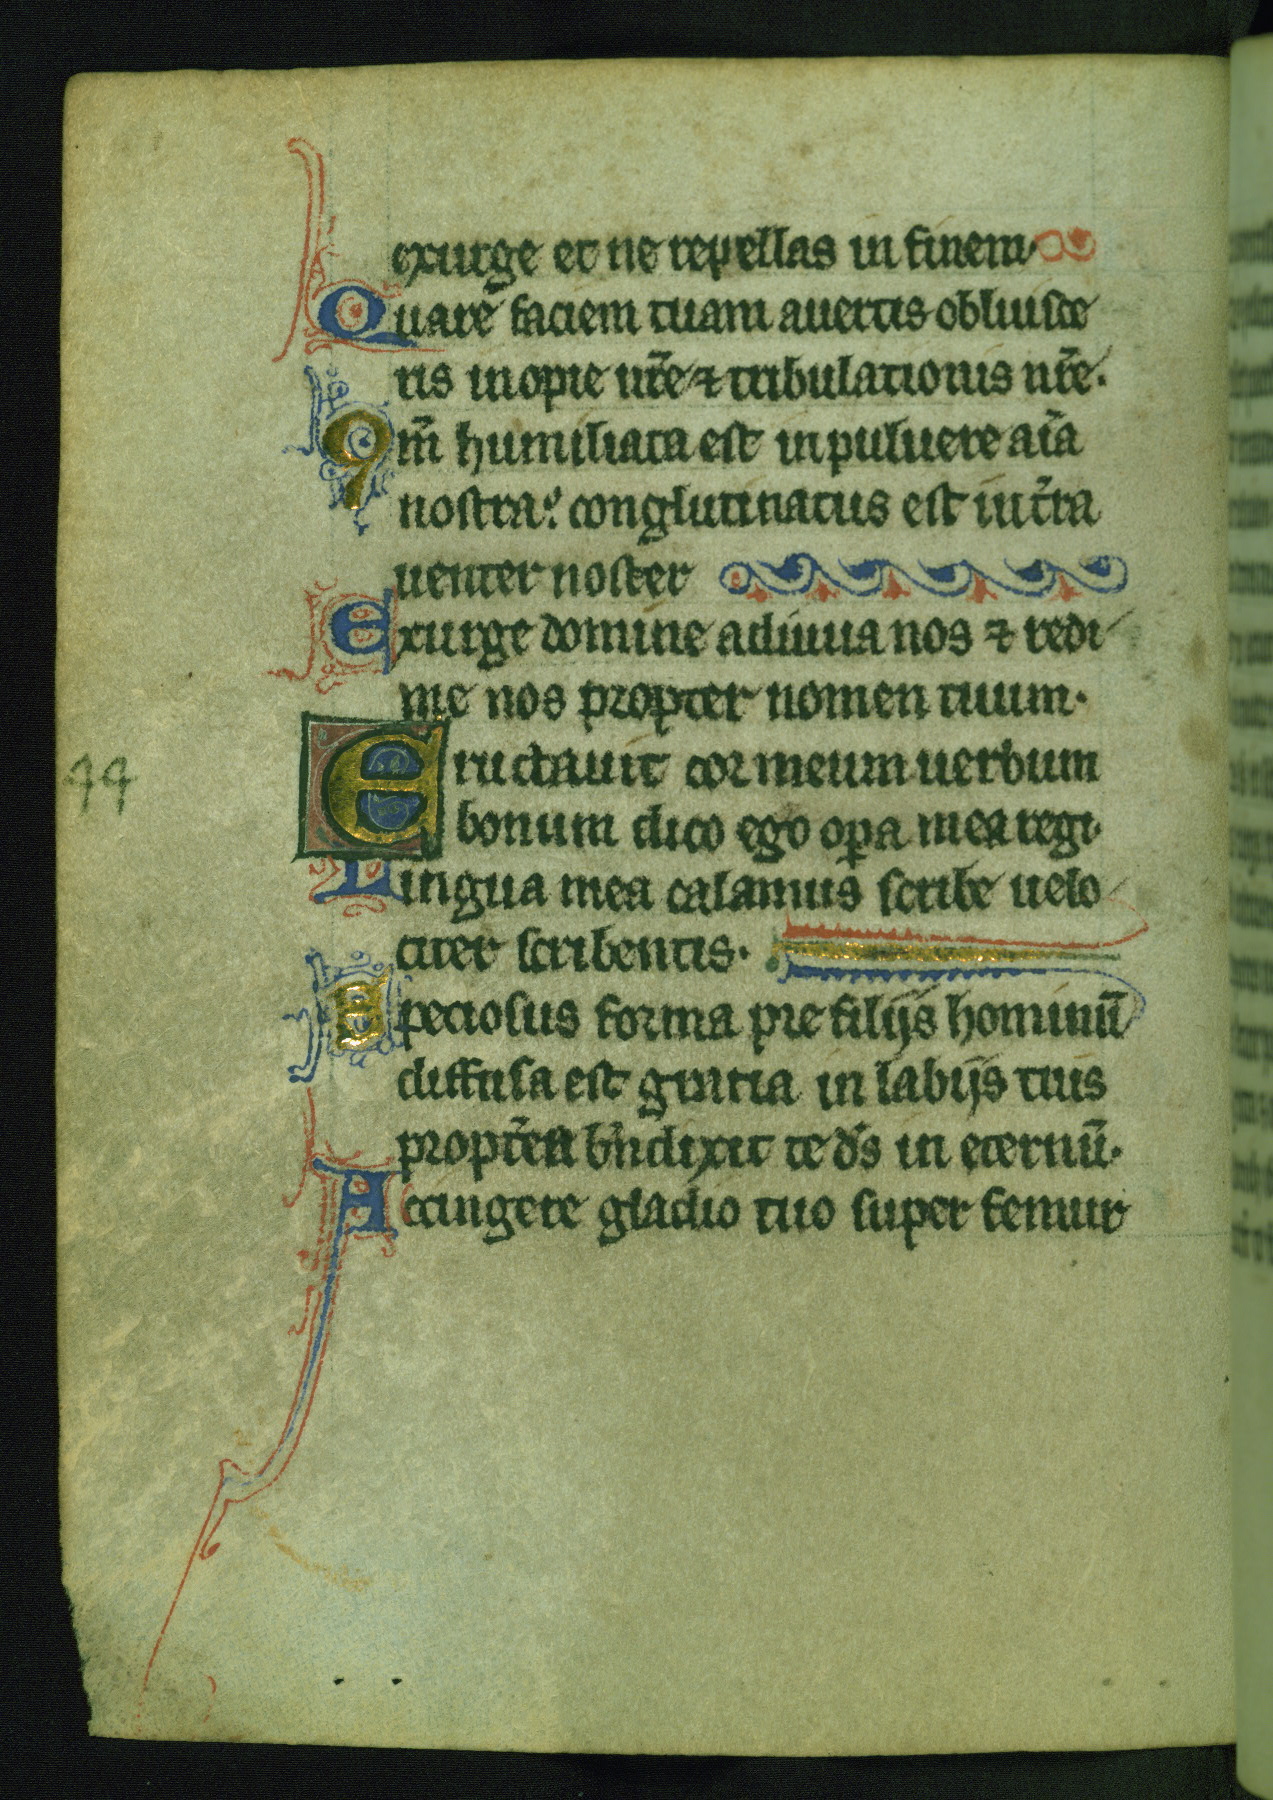 exurge et ne repellas in finem
Quare faciem tuam auertis obliuisce
ris inopie nr̄e ⁊ tribulationis nr̄e.
Qm̄ humiliata est in puluere aīa
nostra: conglutinatus est in tr̄a
uenter noster
Exurge domine adiuua nos ⁊ redi
me nos propter nomen tuum.
Eructauit cor meum uerbum
44
bonum dico ego oꝑa mea regi.
Lingua mea calamus scribe uelo
citer scribentis.
Speciosus forma pre filijs hominū
diffusa est gratia in labijs tuis
propt̄ea bn̄dixit te ds̄ in eternū.
Accingere gladio tuo super femur